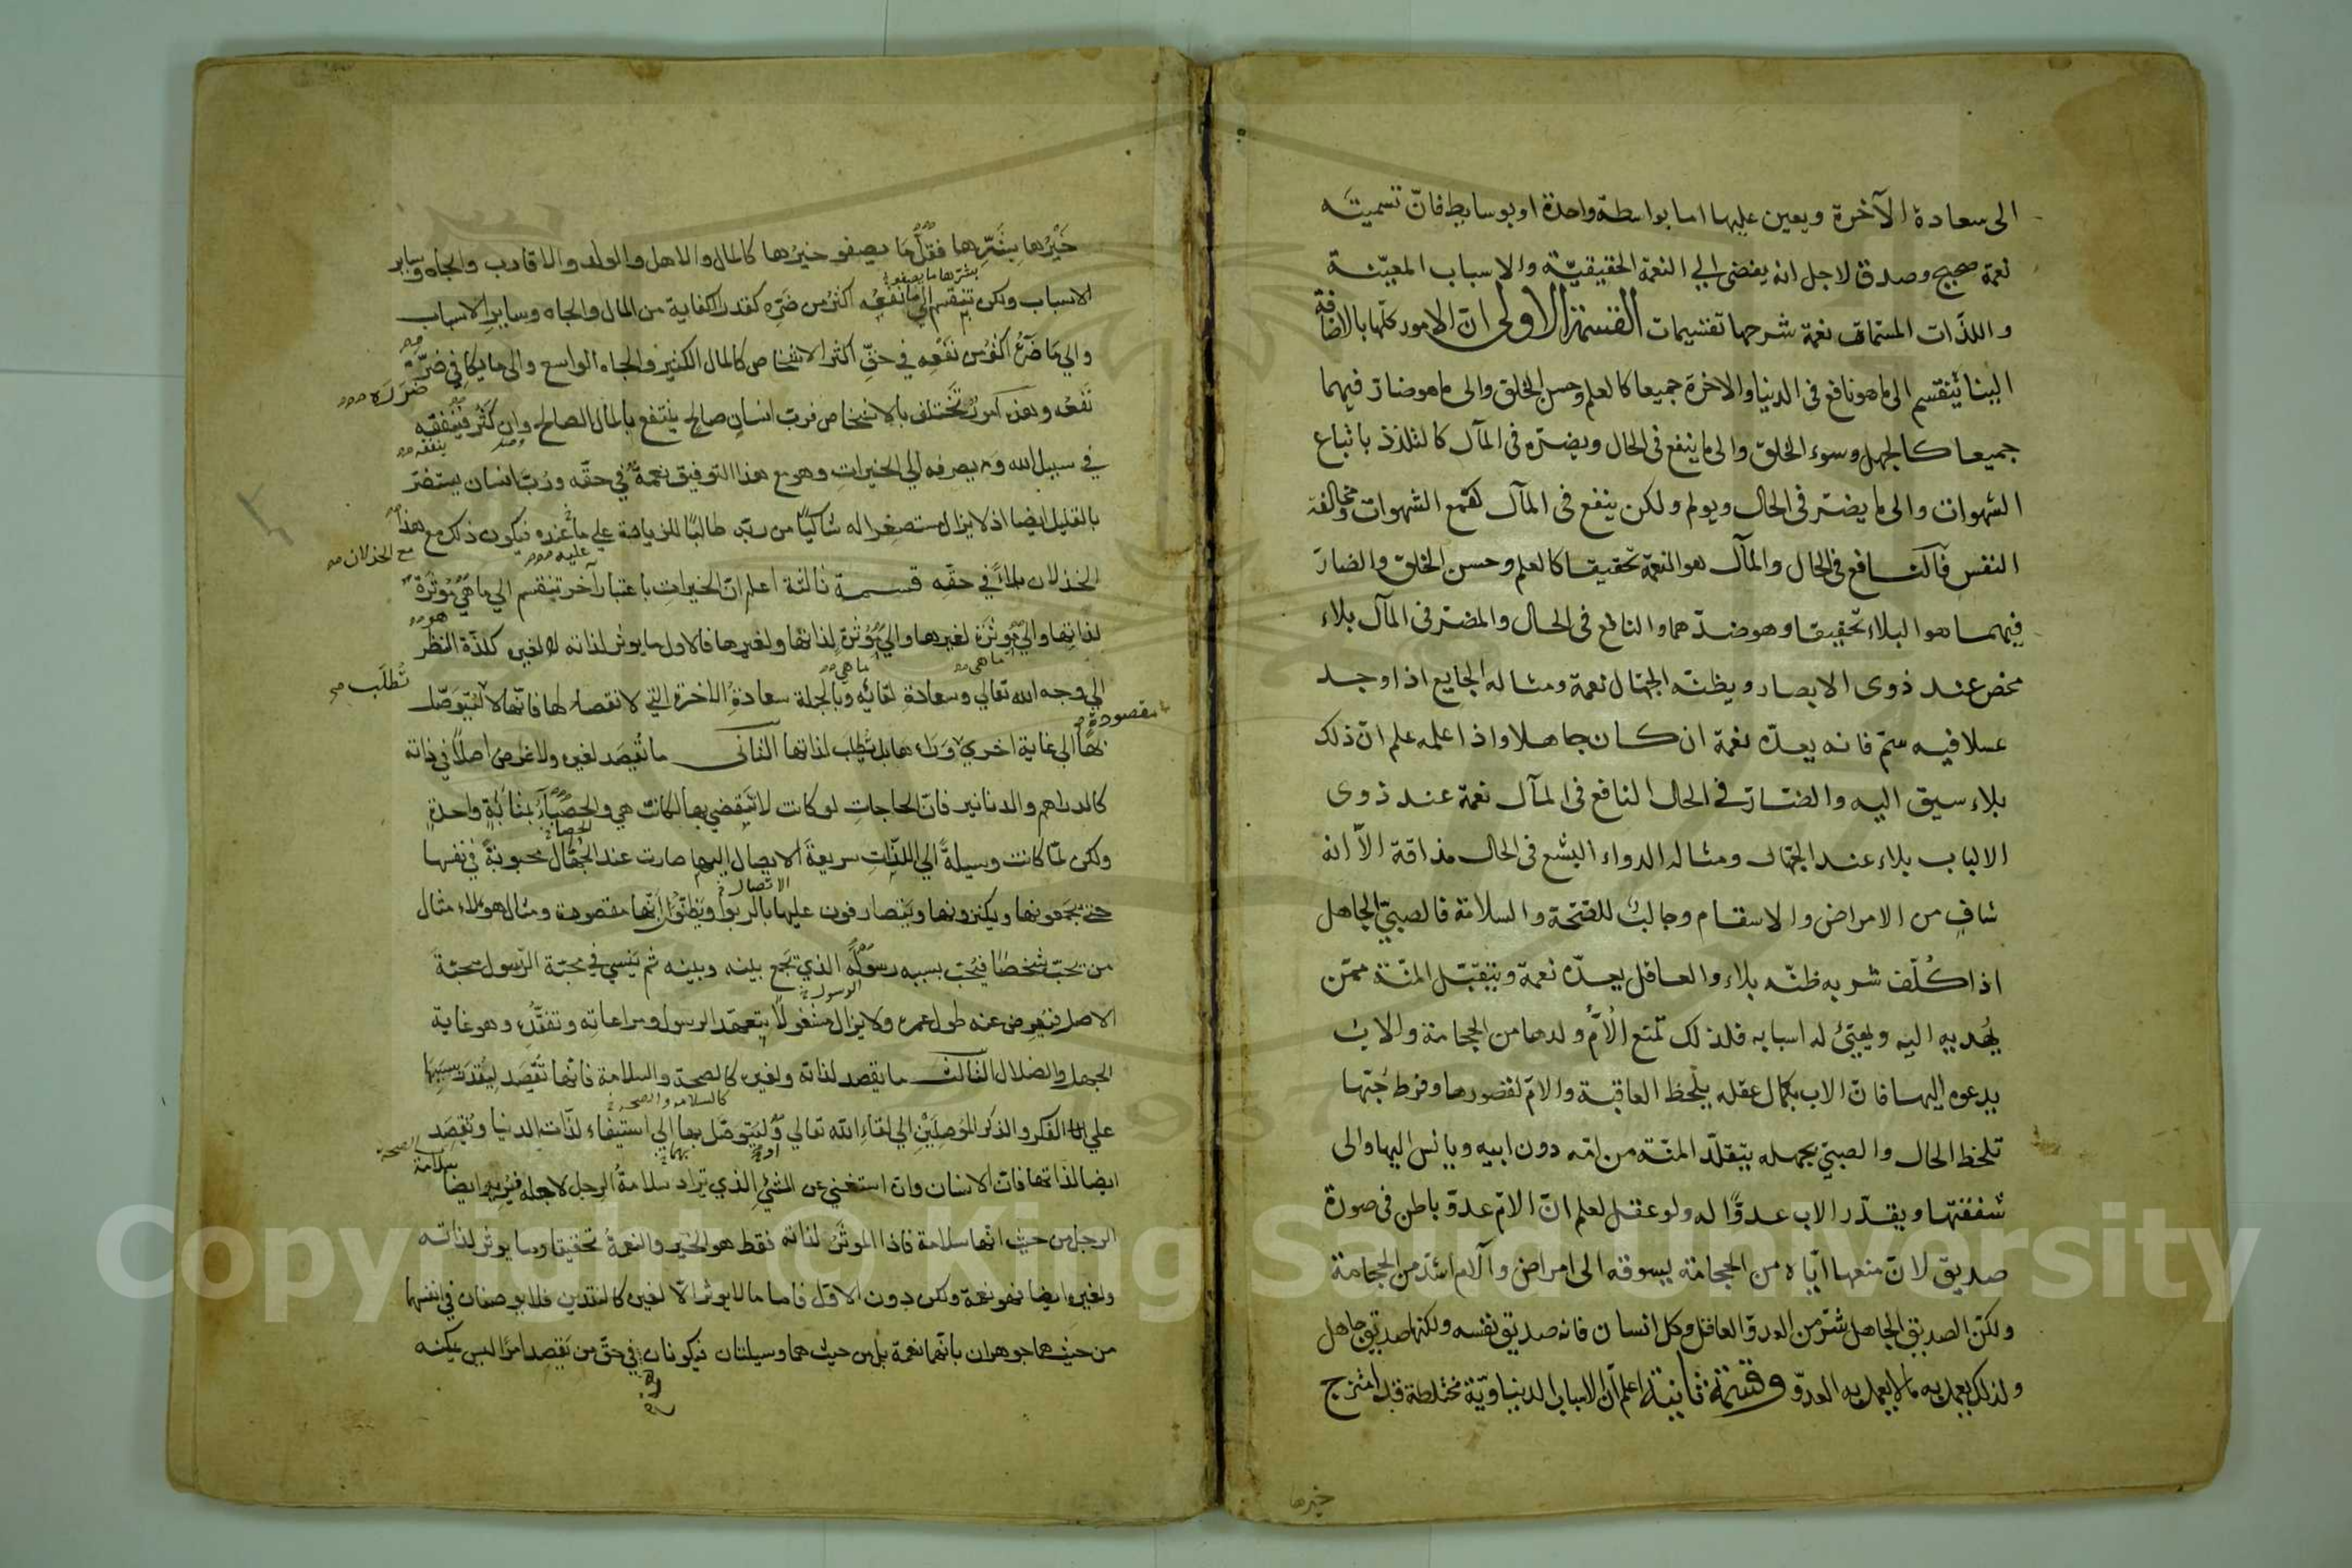 الى سعادة الآخرة ويعين عليها اما بواسطة واحدة او بوسايط فانّ تسميته
نعمة صحيح وصدق لاجل انه يفضى الى النعمة الحقيقيّة والاسباب المعيّنة
واللذّات المسمّاة نعمة شرحها تقسيمات القسمة الاولى انّ الامور كلّها بالاضافة
الينا ينقسم الى ما هو نافع فى الدنيا والاخرة جميعا كالعلم وحسن الخلق والى ما هو ضارّ فيهما
جميعا كالجهل وسوء الخلق والى ما ينفع فى الحال ويضرّه فى المآل كالتلذذ باتباع
الشهوات والى ما يضرّ فى الحال ويولم ولكن ينفع فى المآل كقمع الشهوات ومخالفة
النفس فالنافع فى الحال والمآل هو النعمة تحقيقا كالعلم وحسن الخلق والضارّ
فيهما هو البلاء تحقيقا وهو ضدّهما والنافع فى الحال والمضرّ فى المآل بلاء
محض عند ذوى الابصار ويظنّه الجهّال نعمة ومثاله الجايع اذا وجد
عسلا فيه سمّ فانه يعدّه نعمة ان كان جاهلا واذا علمه علم انّ ذلك
بلاء سيق اليه والضارّ فى الحال النافع فى المآل نعمة عند ذوى
الالباب بلاء عند الجهّال ومثاله الدواء البشع فى الحال مذاقة الاّ انه
شافٍ من الامراض والاسقام وجالبٌ للصّحة والسلامة فالصبىّ الجاهل
اذا كُلّف شربه ظنّه بلاء والعاقل يعدّه نعمة ويتقبّل المنّة ممّن
يُهديه اليه ويهيّئ له اسبابه فلذلك تمنع الأمّ ولدها من الحجامة والاب
يدعوه اليها فانّ الاب بكمال عقله يلحظ العاقبة والامّ لقصورها وفرط حُبّها
تلحظ الحال والصبىّ بجهله يتقلّد المنّة من امّه دون ابيه ويانس اليها والى
شفقتها ويقدّر الاب عدوًّا له ولو عقل لعلم انّ الامّ عدوّ باطن فى صورة
صديق لانّ منعها ايّاه من الحجامة يسوقه الى امراض وآلام اشدّ من الحجامة
ولكنّ الصديق الجاهل شرّ من العدوّ العاقل وكل انسان فانه صديق نفسه ولكنها صديق جاهل
ولذلك يعمل به ما لا يعمل به العدوّ وقسمة ثانية اعلم انّ الاسباب الدنياويّة مختلطة قد امتزج
خيرها
خَيْرُها بِشَرِّها فقلّ ما يصفو خيرُها كالمال والاهل والولد والاقارب والجاه وساير
الاسباب ولكن تنقسم الي ما نفعُه اكثر من ضَرّه كقدر الكفاية من المال والجاه وساير الاسباب
والي ما ضَرُّه اكثر من نفعه في حقّ اكثر الاشخاص كالمال الكثير والجاه الواسع والى ما يكافى ضرّه
ضرره
نفعه وهذه امورٌ تختلف بالاشخاص فربّ انسانٍ صالحٍ ينتفع بالمال الصالح وان كثُر فينفقه
ينفقه
في سبيل الله ويصرفه الي الخيراتِ وهو مع هذا التوفيق نعمةٌ في حقّه وربّ انسان يستضرّ
بالقليل ايضا اذ لا يزال مستصغرا له شاكيًا من ربّه طالبًا للزيادة علي ما عنده فيكون ذلك مع هذا
عليه
مع الخذلان
الخذلان بلاءً في حقّه قسمة ثالثة اعلم انّ الخيراتِ باعتبار آخر تنقسم الي ما هي مُوثَرَة
لذاتها والي مُوثَرَة لغيرها والي مُوثَرةٍ لذاتها ولغيرها فالاول ما يوثر لذاته لا لغيره كلذّة النظر
ما هي
الي وجه الله تعالي وسعادة لقائه وبالجملة سعادةُ الاخرة التي لا انقضاء لها فانّها لا تُطلَب ليتوصّل
تُطلَب
مقصودة
بها الي غاية اخري وراءها بل تُطلب لذاتها الثانى ما يُقصَد لغيره ولا غرض اصلًا في ذاته
كالدراهم والدنانير فانّ الحاجات لو كانت لا تنقضي بها لكانت هي والحصباءُ بمثابةٍ واحدةٍ
ولكن لمّا كانت وسيلةً الي اللذّات سريعة الايصال اليها صارت عند الجُهّال محبوبةً في نفسها
الاتصال
حتي يجمعونها ويكنزونها ويتصارفون عليها بالربوا ويظنّون انّها مقصودة ومثال هؤلاء مثال
من يحبّ شخصًا فيحبّ بسببه رسولَه الذي يجمع بينه وبينه ثم ينسي في محبّة الرّسول محبّة
الرسول
الاصل فيُعرِض عنه طول عمره ولا يزال مشغولًا بتعهّد الرسول ومراعاتِه وتفقّده وهو غاية
الجهل والضلال الثالث ما يقصد لذاته ولغيره كالصحة والسلامة فانّها تُقصَد ليُقدَر بسببها
كالسلامه والصحه
علي الفكر والذكر المُوصِلَيْنِ الي لقاء الله تعالي وليتوصّل بها الي استيفاء لذّات الدنيا وتُقصَد
ايضا لذاتها فانّ الانسان وان استغني عن المشي الذي تراد سلامةُ الرِجل لاجله فيُريد ايضا سلامة
الرجل من حيث انّها سلامة فاذا الموثَرُ لذاته فقط هو الخير والنعمةُ تحقيقا وما يوثر لذاته
ولغيره ايضا فهو نعمة ولكن دون الاوّل فاما ما لا يوثر الّا لغيره كالنقدين فلا يوصفان في انفسهما
من حيث هما جوهران بانّهما نعمة بل من حيث هما وسيلتان فيكونان في حقّ من يَقصِد امرًا ليس يمكنه